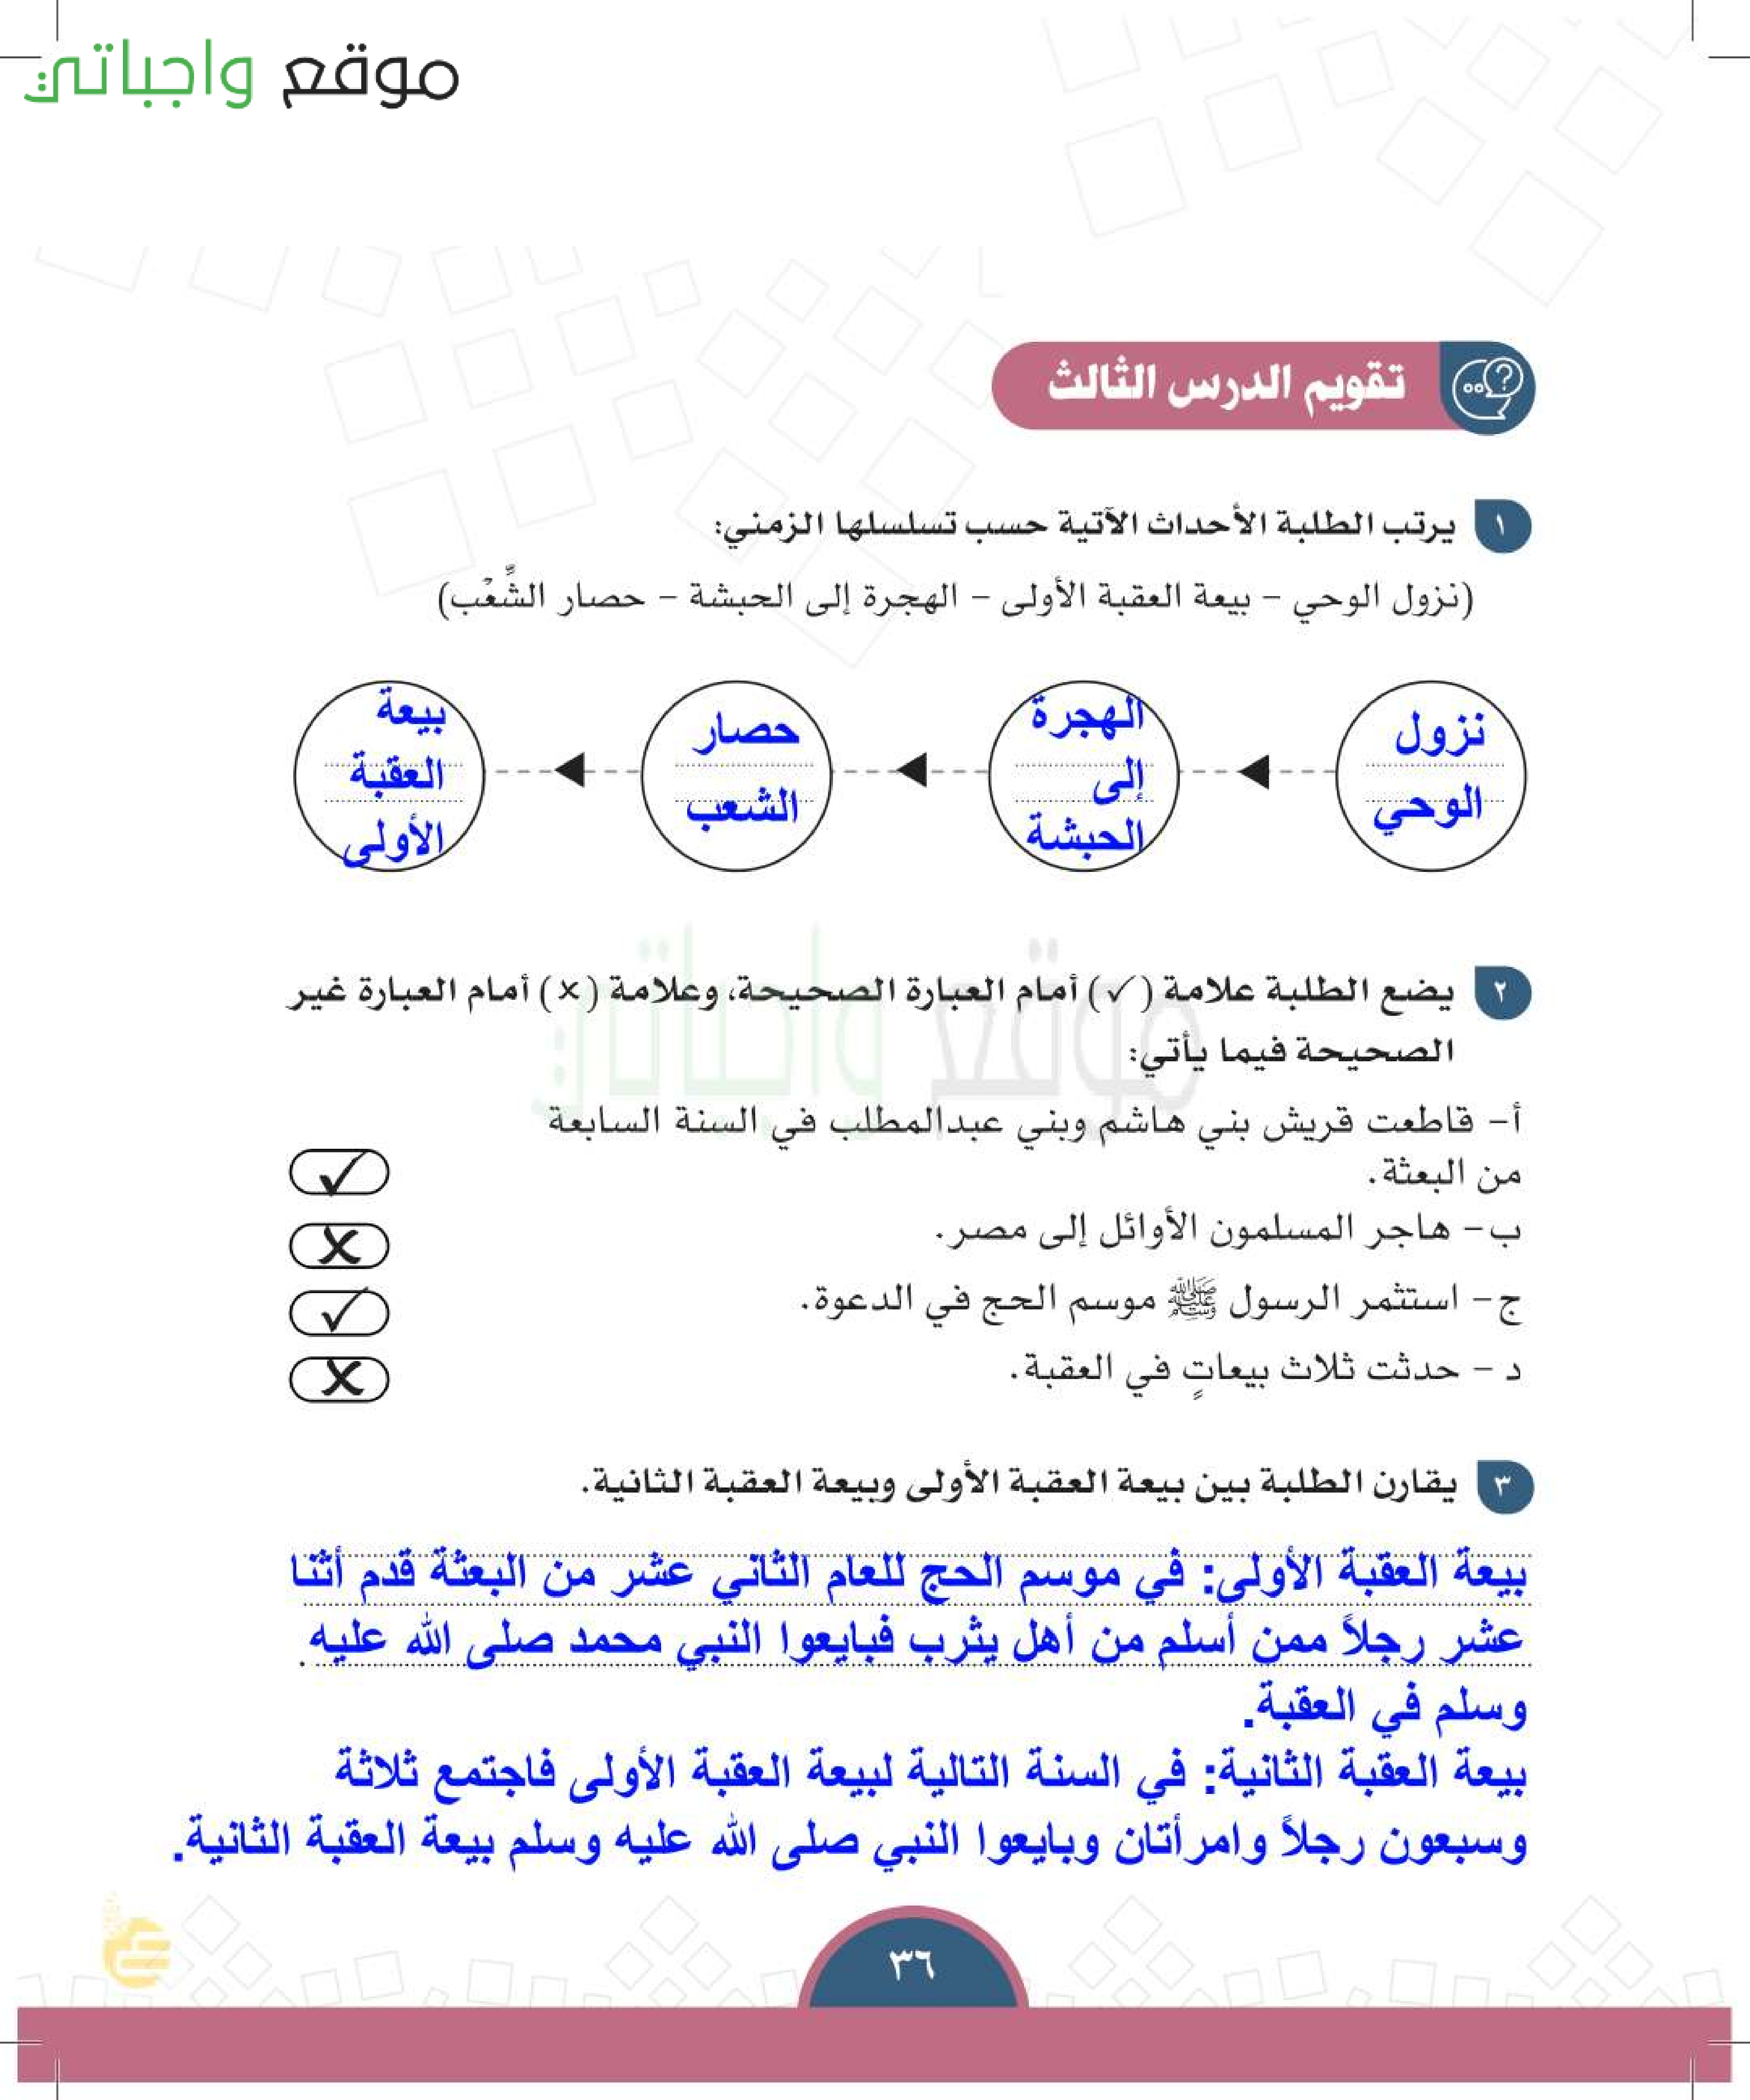 موقع واجباتي
تقويم الدرس الثالث
١ يرتب الطلبة الأحداث الآتية حسب تسلسلها الزمني:
(نزول الوحي – بيعة العقبة الأولى – الهجرة إلى الحبشة – حصار الشِّعْب)
نزول
الوحي
الهجرة
إلى
الحبشة
حصار
الشعب
بيعة
العقبة
الأولى
موقع واجباتي
٢ يضع الطلبة علامة (✓) أمام العبارة الصحيحة، وعلامة (×) أمام العبارة غير
الصحيحة فيما يأتي:
أ– قاطعت قريش بني هاشم وبني عبدالمطلب في السنة السابعة
من البعثة. ✓
ب– هاجر المسلمون الأوائل إلى مصر. ×
ج– استثمر الرسول ﷺ موسم الحج في الدعوة. ✓
د – حدثت ثلاث بيعاتٍ في العقبة. ×
٣ يقارن الطلبة بين بيعة العقبة الأولى وبيعة العقبة الثانية.
بيعة العقبة الأولى: في موسم الحج للعام الثاني عشر من البعثة قدم أثنا
عشر رجلاً ممن أسلم من أهل يثرب فبايعوا النبي محمد صلى الله عليه
وسلم في العقبة.
بيعة العقبة الثانية: في السنة التالية لبيعة العقبة الأولى فاجتمع ثلاثة
وسبعون رجلاً وامرأتان وبايعوا النبي صلى الله عليه وسلم بيعة العقبة الثانية.
٣٦